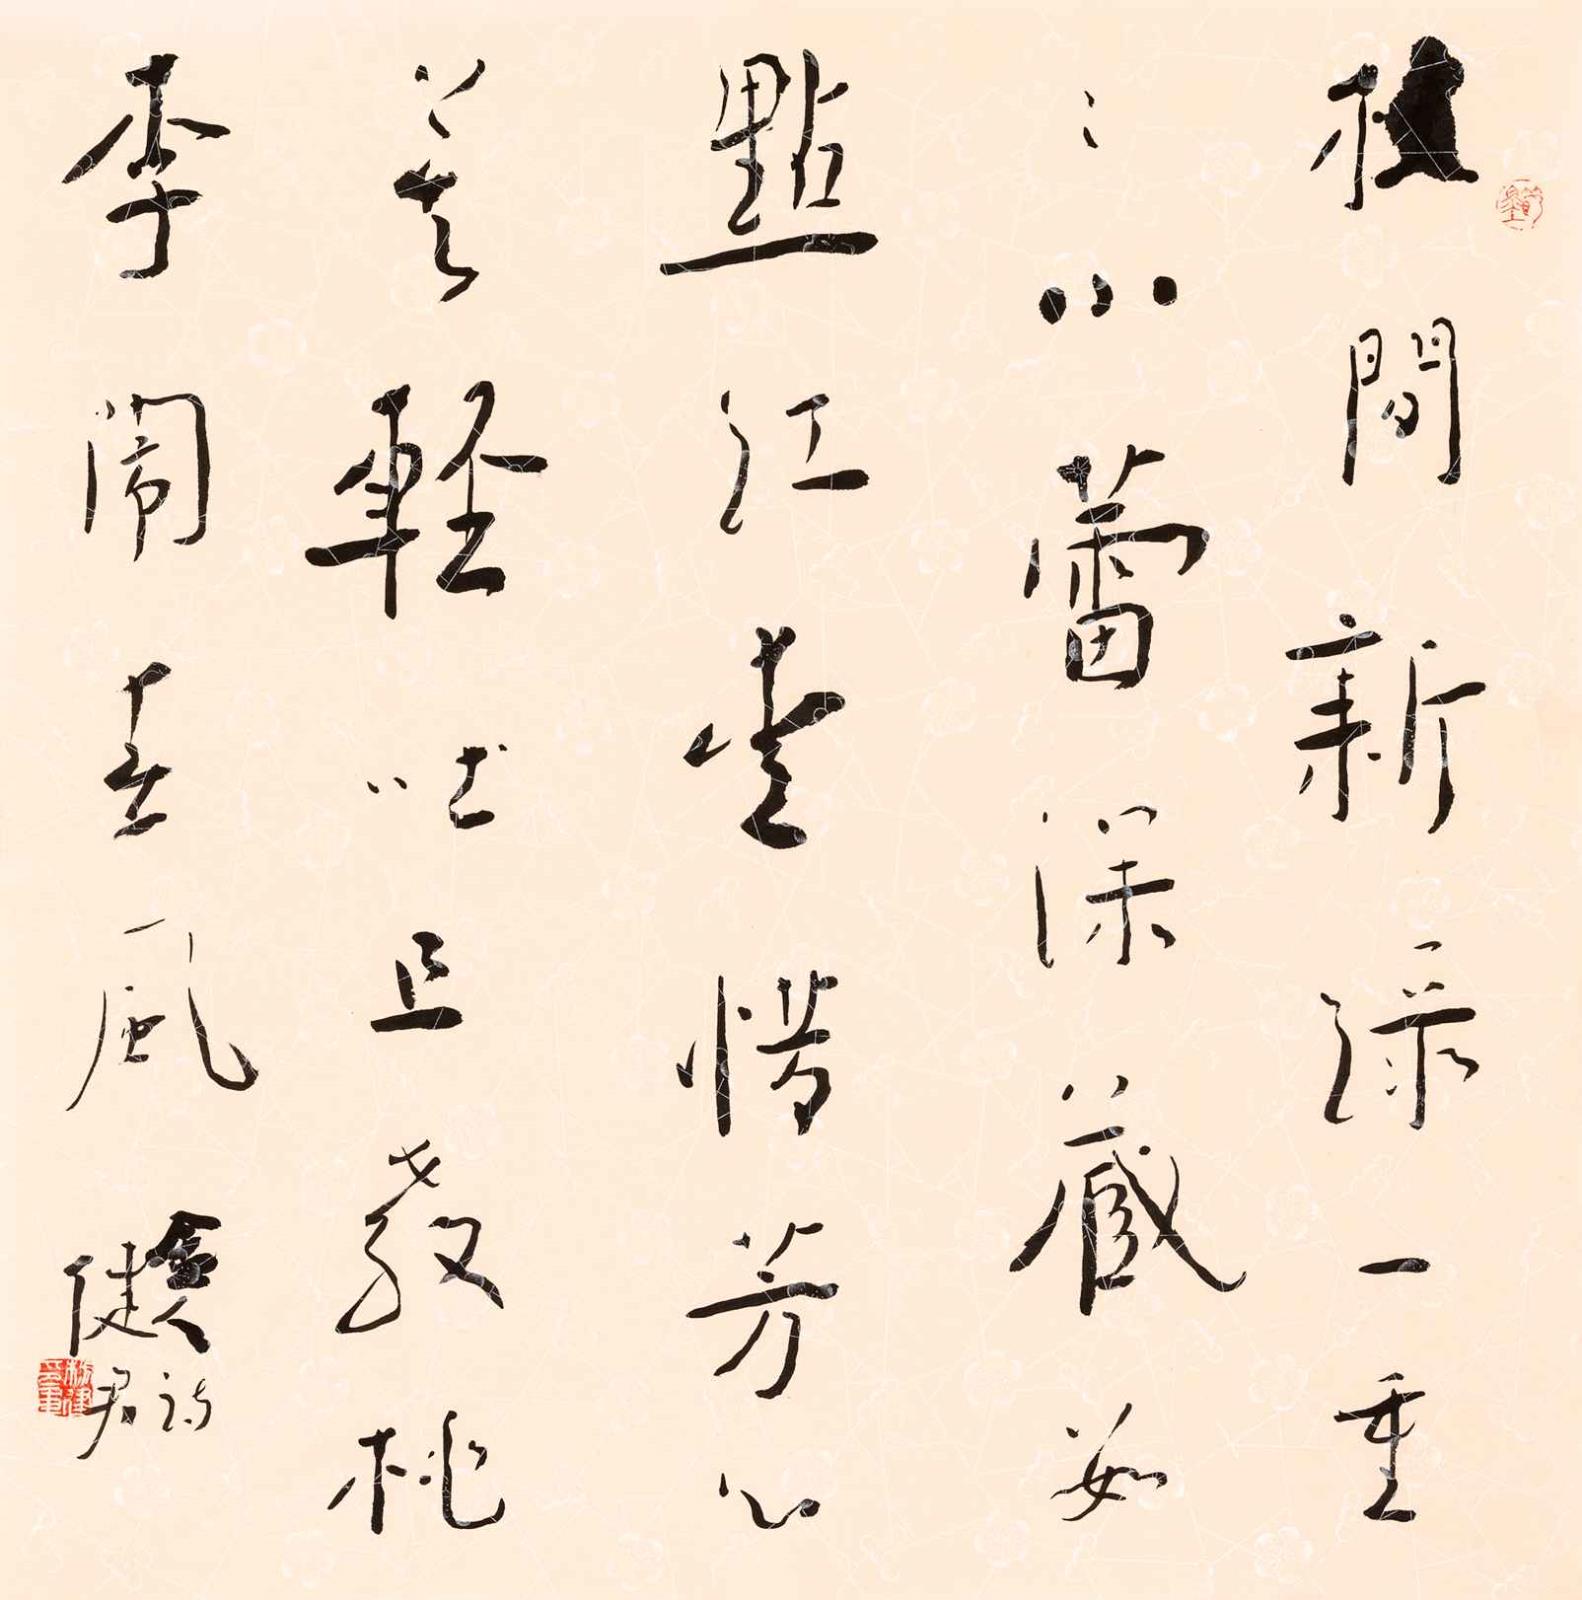 枝間新綠一重
〻小蕾深藏數
點紅愛惜芳心
莫輕吐且教桃
李鬧春風
金人詩
健君